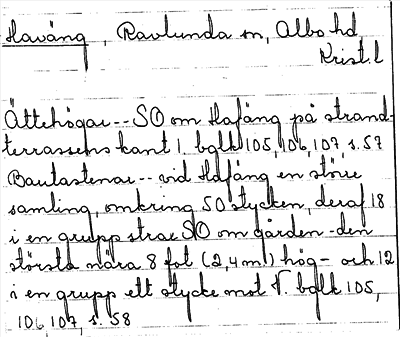 Haväng, Ravlunda sn, Albo hd
Krist. l
Ättehögar -- SO om Hafäng på strand-
terrassens kant 1. bglk 105, 106, 107, s. 57
Bautastenar -- vid Hafäng en större
samling, omkring 50 stycken, deraf 18
i en grupp strax SO om gården - den
största nära 8 fot (2,4 m) hög - och 12
i en grupp ett stycke mot V. bglk 105,
106 107, s. 58